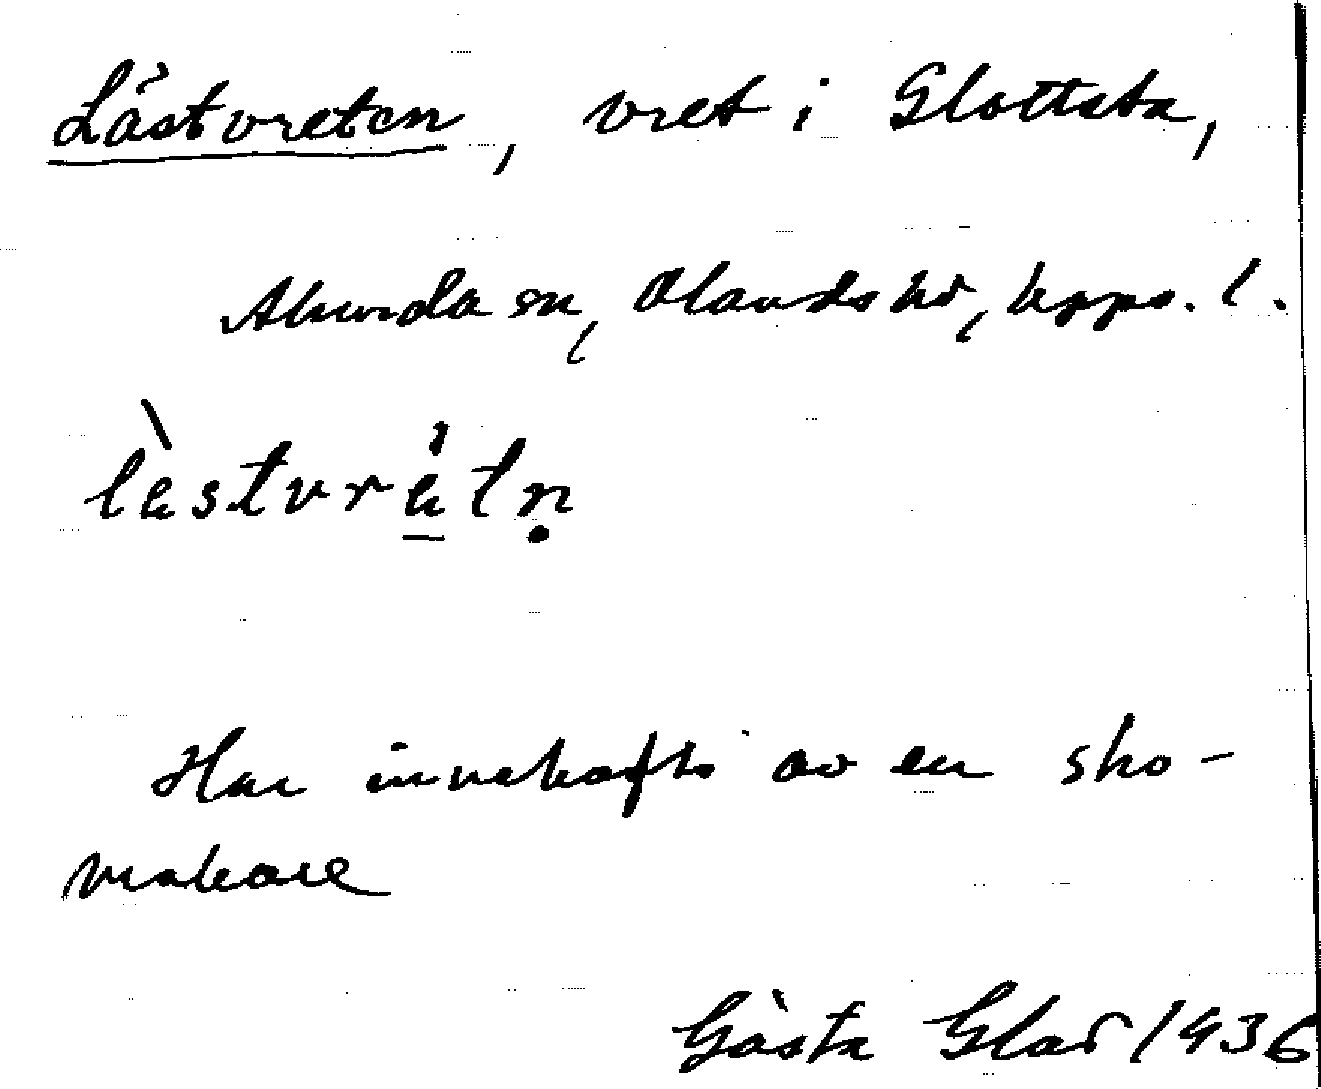 Lästvreten, vret i Glottsta,
Alunda sn, Olands hd, Upps. l.
lästvrätn̥
Har innehafts av en sko-
makare
Gösta Glad 1936